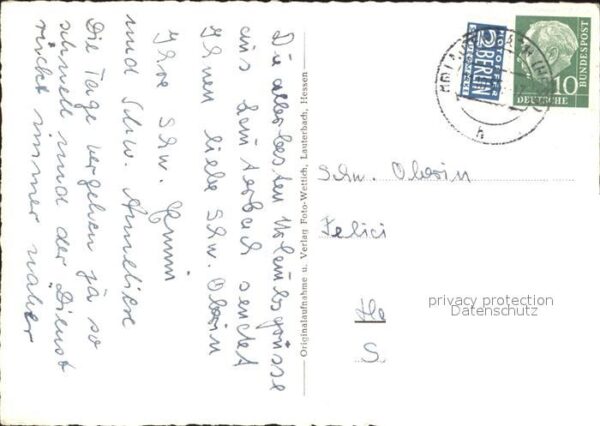 Die allerbesten Urlaubsgrüsse
aus Lauterbach sendet
Ihnen liebe Schw. Oberin
Ihre Schw.
und Schw. Anneliese
Die Tage vergehen ja so
schnell und der Dienst
rückt immer näher
Originalaufnahme u. Verlag Foto-Wettich, Lauterbach, Hessen
NOTOPFER
2 BERLIN
STEUERMARKE
10
DEUTSCHE
BUNDESPOST
h
Schw. Oberin
Felici
He
S.
privacy protection
Datenschutz